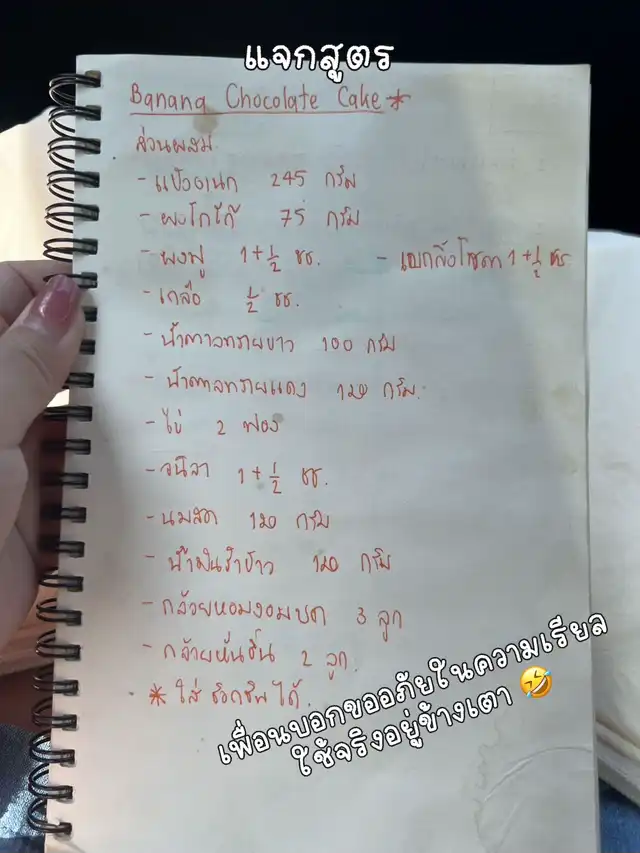 แจกสูตร
Banana Chocolate Cake *
ส่วนผสม
- แป้งอเนก 245 กรัม
- ผงโกโก้ 75 กรัม
- ผงฟู 1+1/2 ชช. - เบกกิ้งโซดา 1+1/2 ชช.
- เกลือ 1/2 ชช.
- น้ำตาลทรายขาว 100 กรัม
- น้ำตาลทรายแดง 120 กรัม.
- ไข่ 2 ฟอง
- วนิลา 1+1/2 ชช.
- นมสด 120 กรัม
- น้ำมันรำข้าว 120 กรัม
- กล้วยหอมงอมบด 3 ลูก
- กล้วยหั่นชิ้น 2 ลูก.
* ใส่ ช็อกชิพ ได้.
เพื่อนบอกขออภัยในความเรียล
ใช้จริงอยู่ข้างเตา 🤣